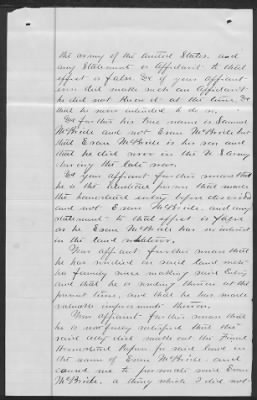 the army of the United States. and
any Statement or Affidavit to that
effect is false. & if your affiant
ever did make such an affidavit
he did not know it at the time, &
that he never intended to do so.
& further his true name is Samuel
McBride and not Evan McBride but
that Evan McBride is his son and
that he did serve in the U S Army
during the late war.
& your affiant further swears that
he is the identical person that made
the homestead entry before
and not Evan McBride. and any
statement to that effect is false
as he Evan McBride has no interest
in the land whatever.
Your affiant further swears that
he has resided on said land with
his family since making said Entry
and that he is residing thereon at the
present time, and that he has made
valuable improvements thereon.
Your affiant further swears that
he is now fully satisfied that the
said atty did make out the Final
Homestead Papers for said land in
the name of Evan McBride. and
caused me to personate said Evan
McBride. a thing which I did not